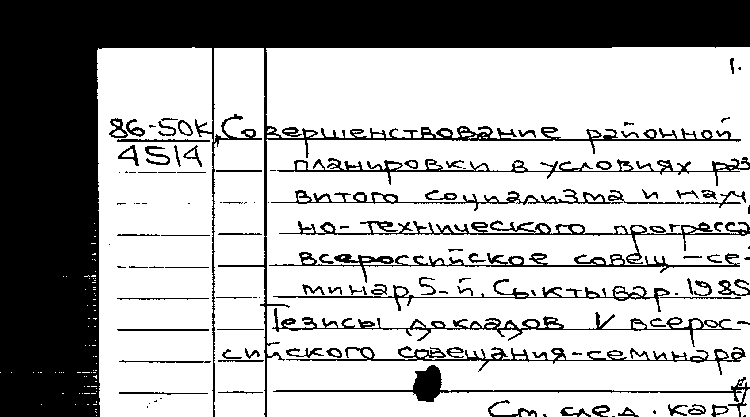 1.
86-50К Совершенствование районной
4514 планировки в условиях раз
витого социализма и науч
но-технического прогресса
всероссийское совещ-се-
минар, 5-й. Сыктывкар. 1985
Тезисы докладов V всерос-
сийского совещания-семинара
См. след. карт